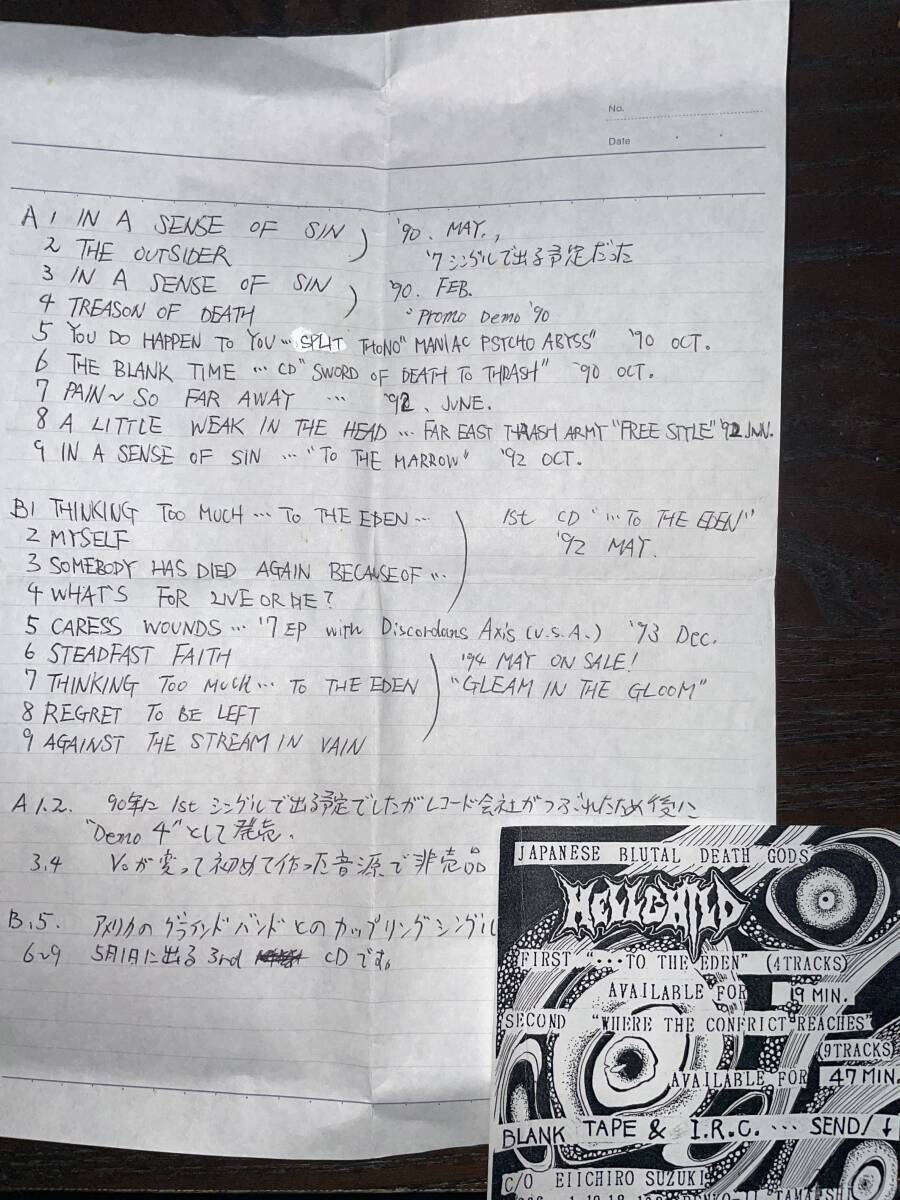 No.
Date
A 1 IN A SENSE OF SIN '90. MAY.,
2 THE OUTSIDER '7シングルで出る予定だった
3 IN A SENSE OF SIN '90. FEB.
4 TREASON OF DEATH "Promo Demo '90
5 YOU DO HAPPEN TO YOU … SPLIT "MANIAC PSYCHO ABYSS" '90 OCT.
6 THE BLANK TIME … CD "SWORD OF DEATH TO THRASH" '90 OCT.
7 PAIN~SO FAR AWAY … JUNE.
8 A LITTLE WEAK IN THE HEAD … FAR EAST THRASH ARMY "FREE STYLE"
9 IN A SENSE OF SIN … "TO THE MARROW" '92 OCT.
B1 THINKING TOO MUCH … TO THE EDEN … 1st CD "…TO THE EDEN"
2 MYSELF '92 MAY.
3 SOMEBODY HAS DIED AGAIN BECAUSE OF …
4 WHAT'S FOR LIVE OR DIE?
5 CARESS WOUNDS … '7 EP with Discordans Axis (U.S.A.) '93 Dec.
6 STEADFAST FAITH '94 MAY ON SALE!
7 THINKING TOO MUCH … TO THE EDEN "GLEAM IN THE GLOOM"
8 REGRET TO BE LEFT
9 AGAINST THE STREAM IN VAIN
A 1.2. 90年に 1st シングルで出る予定でしたがレコード会社がつぶれたため後に
"Demo 4"として発売.
3.4 Voが変って初めて作った音源で非売品
B.5. アメリカのグラインドバンドとのカップリングシングル
6~9 5月1日に出る 3rd CDです。
JAPANESE BLUTAL DEATH GODS
HELLCHILD
FIRST "…TO THE EDEN" (4TRACKS)
AVAILABLE FOR 19 MIN.
SECOND "WHERE THE CONFRICT REACHES"
(9TRACKS)
AVAILABLE FOR 47 MIN.
BLANK TAPE & I.R.C. … SEND/↓
C/O EIICHIRO SUZUKI